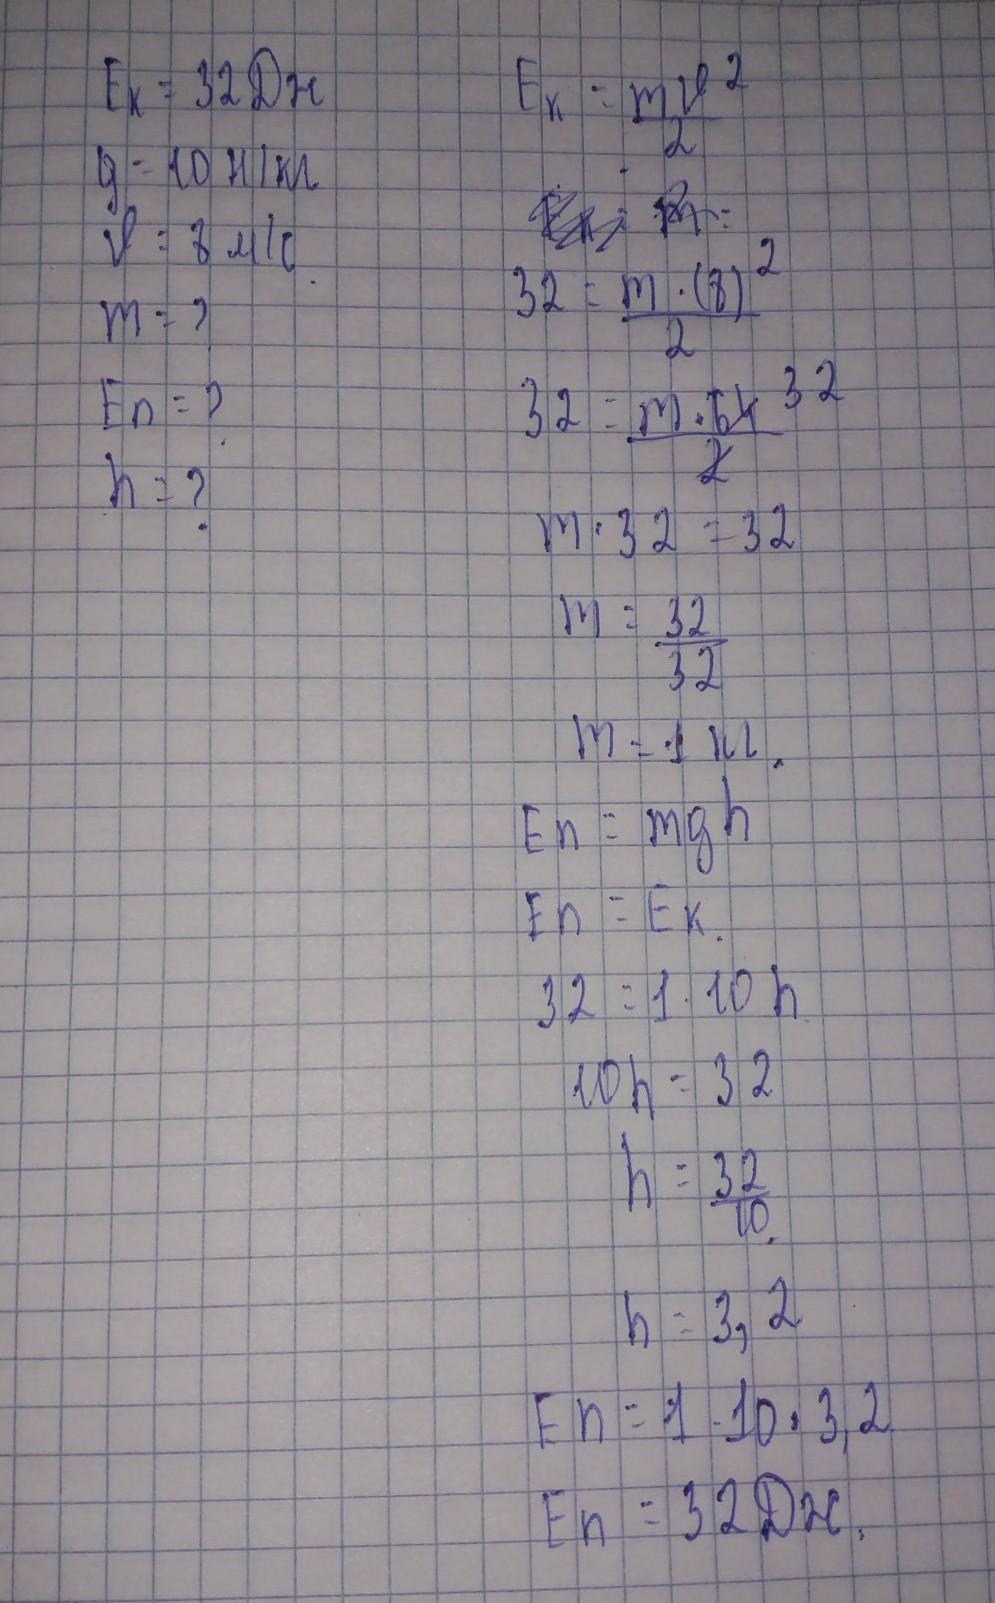 Eк = 32 Дж
g = 10 Н/кг
v = 8 м/с
m = ?
Eп = ?
h = ?
Eк = mv²/2
32 = m · (8)²/2
32 = m · 64/2 32
m · 32 = 32
m = 32/32
m = 1 кг.
Eп = mgh
Eп = Eк.
32 = 1 · 10 h
10h = 32
h = 32/10.
h = 3,2
Eп = 1 · 10 · 3,2
Eп = 32 Дж.